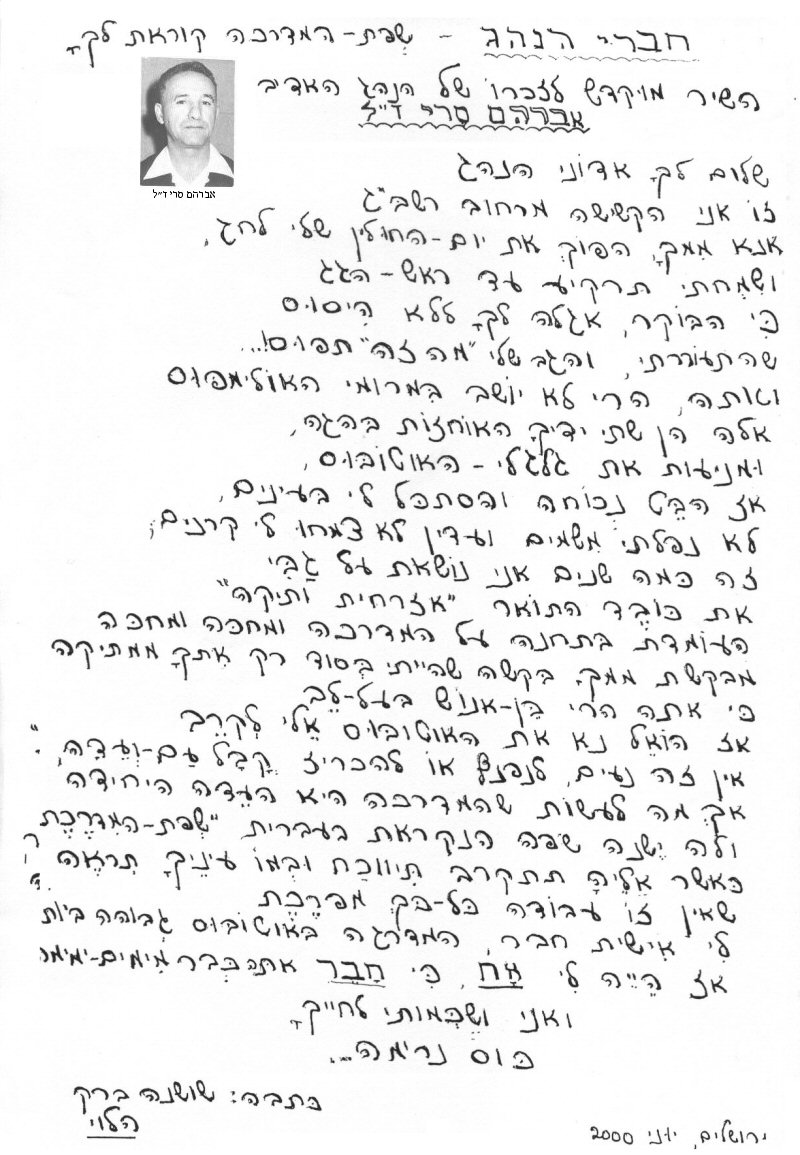 חברי הנהג - שְׂפת-המדרכה קוראת לךָ
השיר מוקדש לזכרוֹ של הנהג האדיב
אברהם סרי ז"ל
אברהם סרי ז"ל
שלום לךָ אדוֹני הנהג
זוֹ אני הקשישה מרחוב רשב"ג
אנא ממךָ, הפוֹךְ את יום-החולין שלי לחג,
ושִׂמְחתי תרקיע עד ראש-הגג
כִּי הבוֹקר, אגלה לךָ ללא היסוס
שהתעוררתי, והגב שלי "מה זה" תפוס!...
ואתה, הרי לא יושב במרומי האוֹלימפוס
אלה הן שתי ידיךָ האוֹחזוֹת בהגה,
וּמניעות את גלגלי-האוטוֹבּוּס,
אז הבֵּט נְכוֹחה והסתכל לי בעינים,
לא נפלתי מִשמים ועדין לא צמחו לי קרנים;
זה כמה שנים אני נוֹשׂאת על גַבִּי
את כּוֹבֶד התוֹאר "אזרחית ותיקה"
העוֹמדת בתחנה על המדרכה ומחכה ומחכה
מבקשת ממךָ בקשה שהייתי בְּסוד רק אִתְּךָ ממתיקה
כִּי אתה הרי בֶּן-אנוֹש בּעל-לֵב
אז הוֹאֵל נא את האוטובוס אֵלַי לְקרֵב
אין זה נעים, לנפנף אוֹ להכריז קֳבָל עַם-וְעֵדָה,
אךְ מה לעשׂות שהמדרכה היא העֵדה היחידה
ולה יֶשנה שׂפה הנקראת בעברית "שְׂפת-המִדְרֶכֶת"
כאשר אֵליהָ תתקרב תִּיווֹכַח וּבְמוֹ עיניךָ תִראֶה
שאין זוֹ עבוֹדה כל-כךְ מפרֶכֶת
לי אִישית חבר, המדרגה באוטוֹבּוּס גְבוֹהה ביוֹת
אז הֱיֵה לִי אָח, כִּי חָבֵר אתה כְּבר מִימים-ימימה
ואני וְשֶׁכְּמוֹתי לחייךָ
כּוֹס נרימה...
כתבה: שושנה ברק
הלוי
ירושלים, יוני 2000